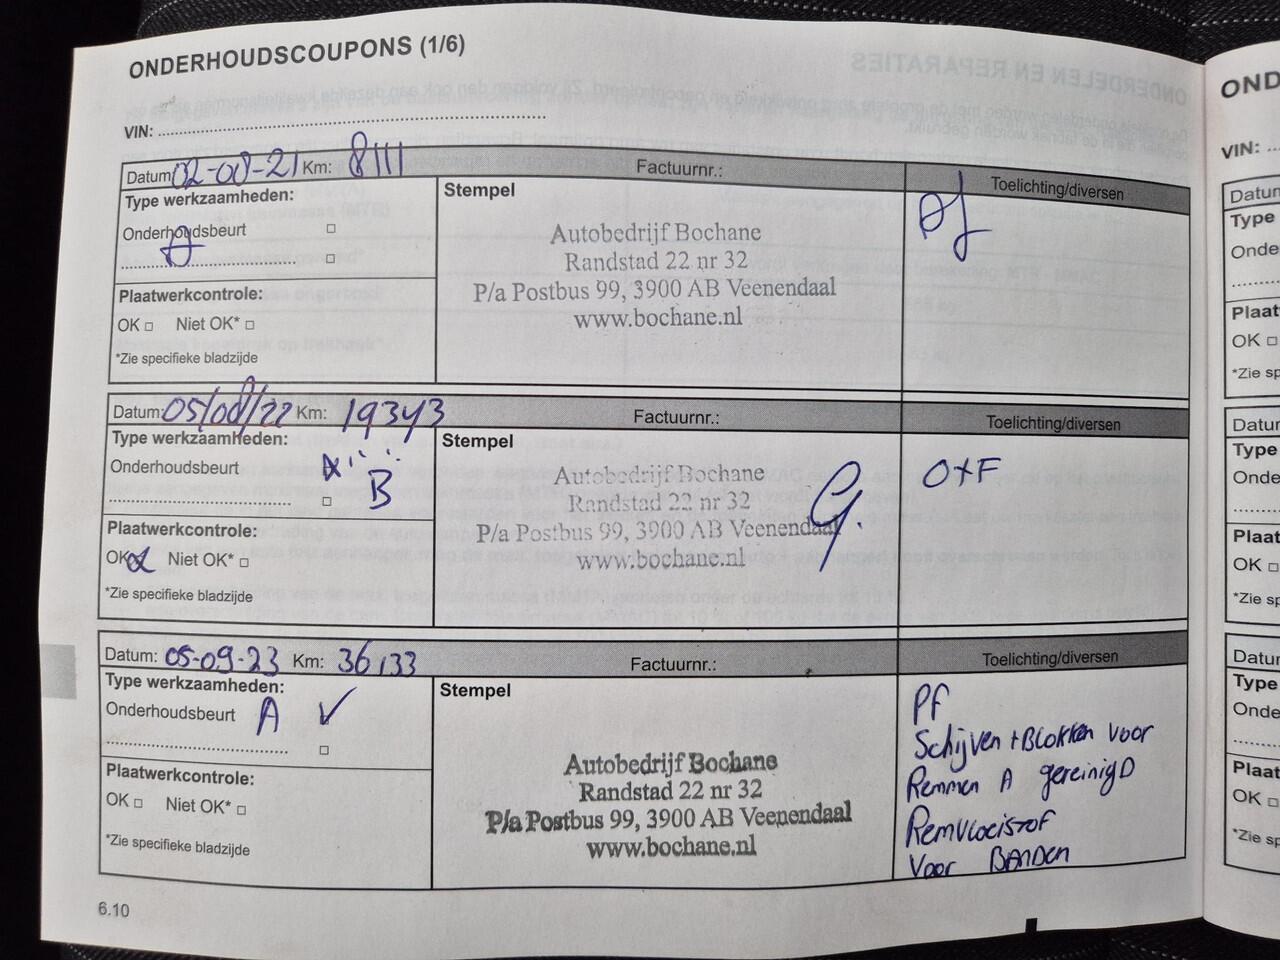 ONDERHOUDSCOUPONS (1/6)
VIN:
Datum: 02-08-21 Km: 8111 Factuurnr.: Toelichting/diversen
Type werkzaamheden: Stempel
Onderhoudsbeurt
A
Autobedrijf Bochane
Randstad 22 nr 32
P/a Postbus 99, 3900 AB Veenendaal
www.bochane.nl
Plaatwerkcontrole:
OK Niet OK*
*Zie specifieke bladzijde
Datum: 05/08/22 Km: 19343 Factuurnr.: Toelichting/diversen
Type werkzaamheden: Stempel
Onderhoudsbeurt
B
Autobedrijf Bochane
Randstad 22 nr 32
P/a Postbus 99, 3900 AB Veenendaal
www.bochane.nl
O+F
Plaatwerkcontrole:
OK Niet OK*
*Zie specifieke bladzijde
Datum: 05-09-23 Km: 36133 Factuurnr.: Toelichting/diversen
Type werkzaamheden: Stempel
Onderhoudsbeurt A
Autobedrijf Bochane
Randstad 22 nr 32
P/a Postbus 99, 3900 AB Veenendaal
www.bochane.nl
PF
Schijven + Blokken voor
Remmen A gereinigD
Remvloeistof
Voor BANDEN
Plaatwerkcontrole:
OK Niet OK*
*Zie specifieke bladzijde
6.10
VIN:
Type
Plaat
OK
*Zie sp
Type
Plaat
OK
*Zie sp
Type
Plaat
OK
*Zie sp